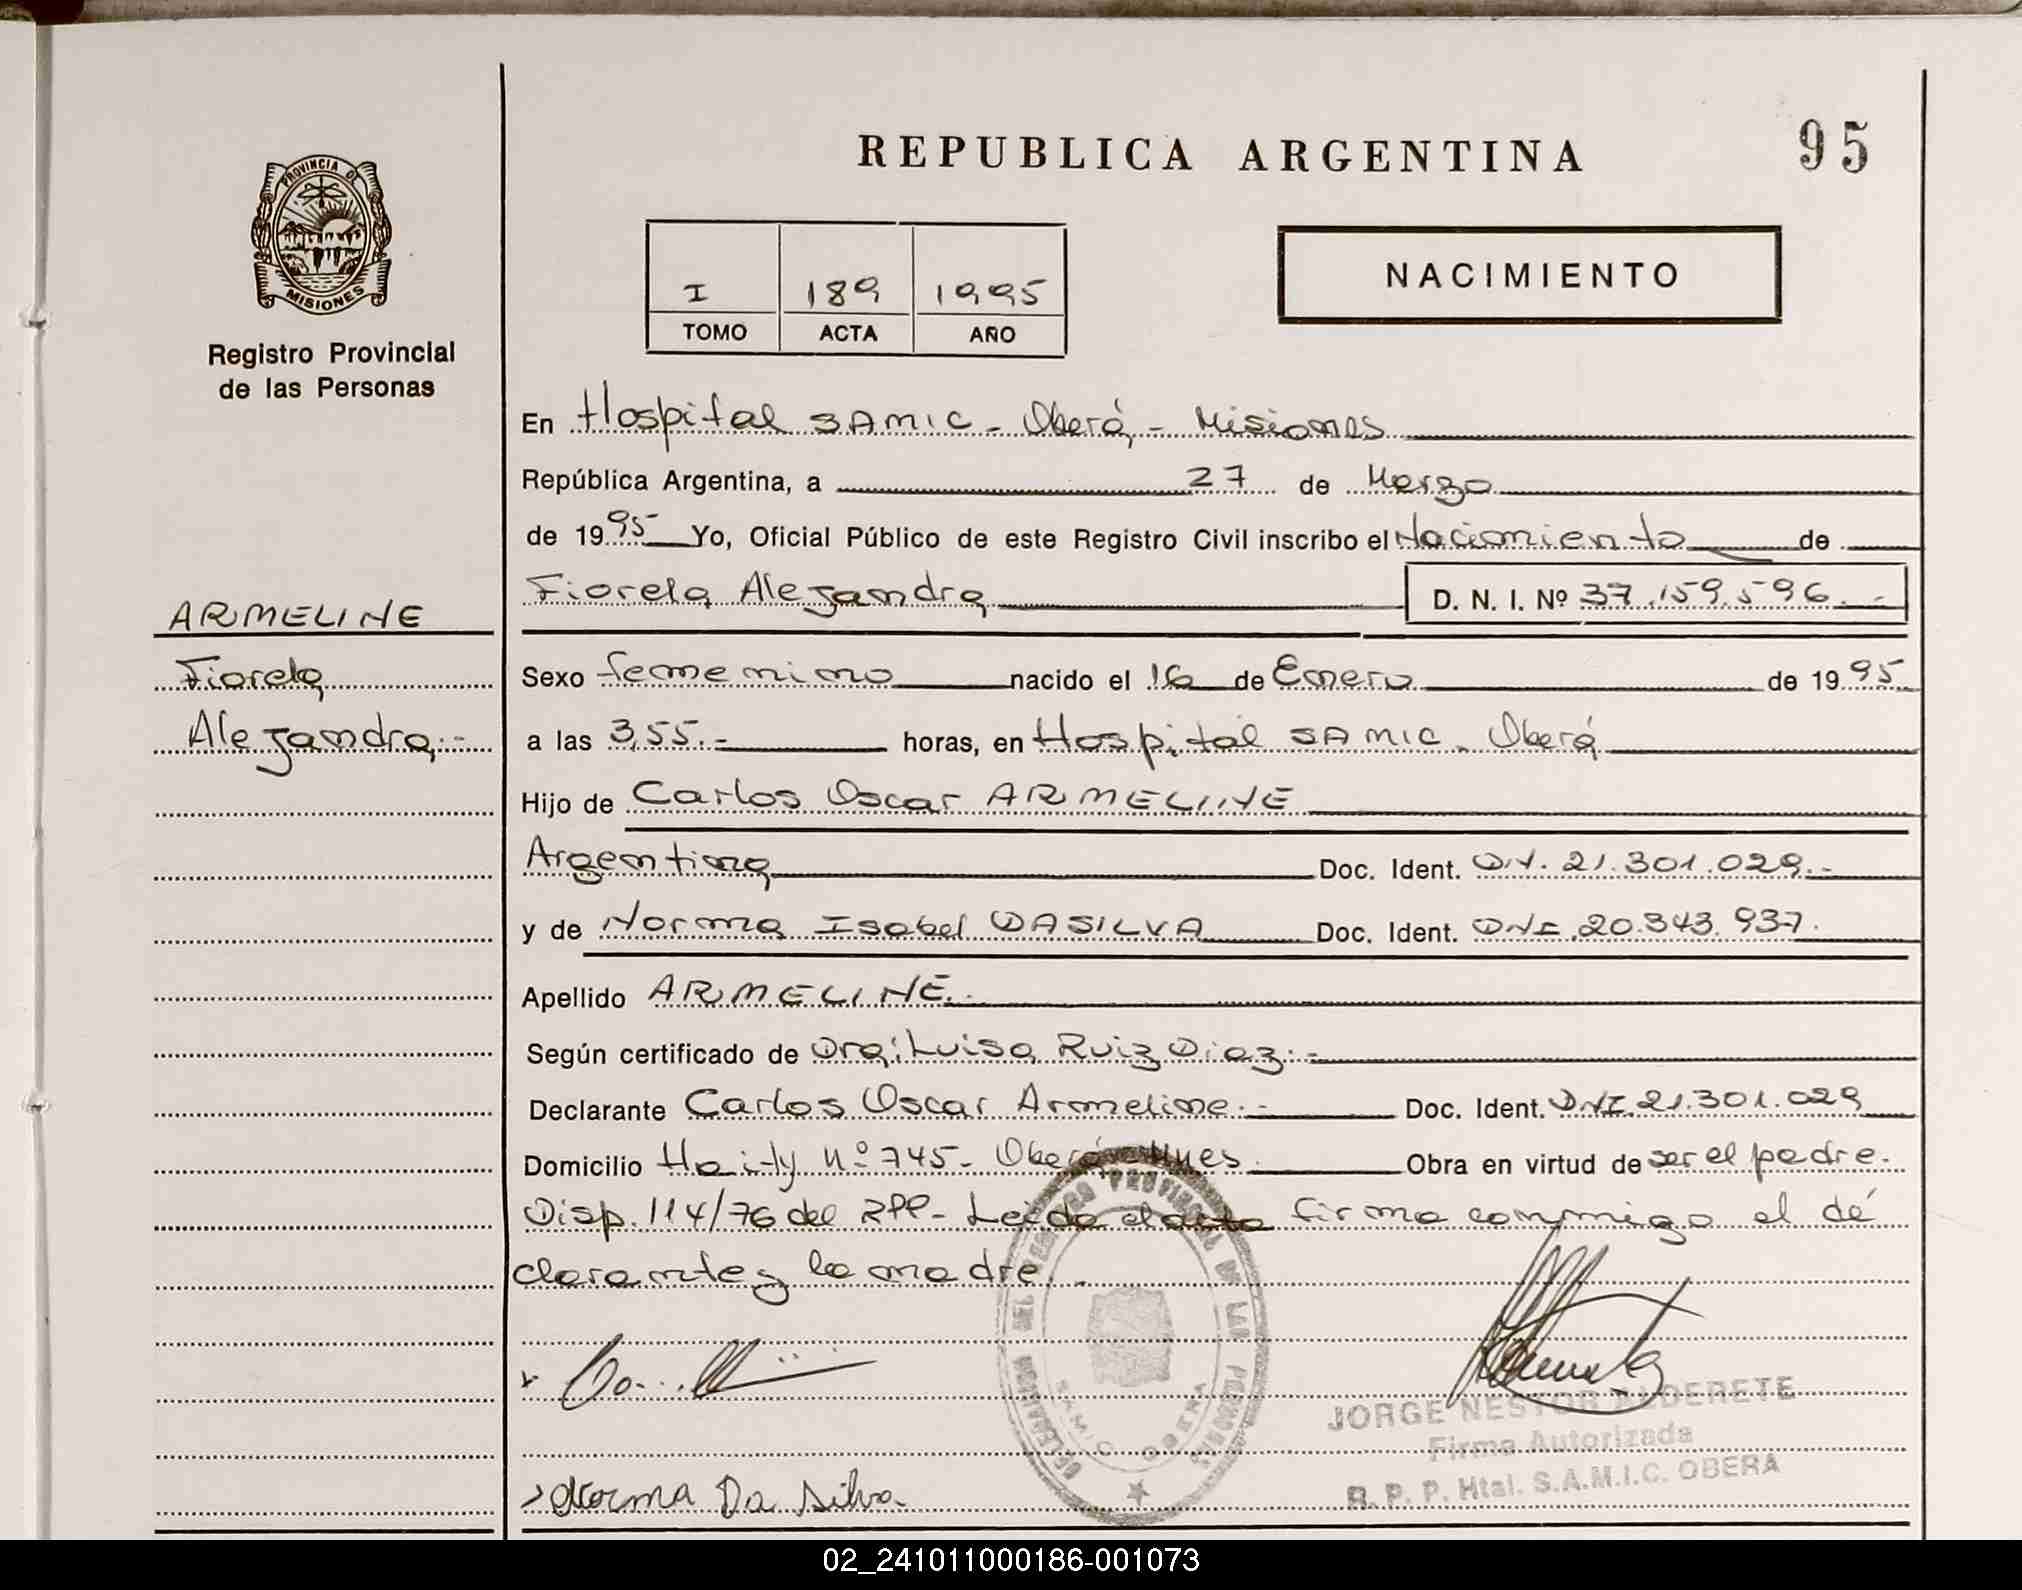 REPUBLICA ARGENTINA
95
PROVINCIA DE
MISIONES
Registro Provincial
de las Personas
I 189 1995
TOMO ACTA AÑO
NACIMIENTO
En Hospital SAMIC - Oberá, - Misiones
República Argentina, a 27 de Marzo
de 1995 Yo, Oficial Público de este Registro Civil inscribo el Nacimiento de
Fiorela Alejandra D. N. I. Nº 37.159.596.-
ARMELINE
Fiorela
Alejandra.-
Sexo femenino nacido el 16 de Enero de 1995
a las 3,55.- horas, en Hospital SAMIC - Oberá
Hijo de Carlos Oscar ARMELINE
Argentina Doc. Ident. DNI. 21.301.029.-
y de Norma Isabel DASILVA Doc. Ident. DNI. 20.343.937.
Apellido ARMELINE.-
Según certificado de Dra: Luisa Ruiz Diaz.-
Declarante Carlos Oscar Armeline.- Doc. Ident. DNI. 21.301.029
Domicilio Haity Nº 745- Oberá Mnes. Obra en virtud de ser el padre.
Disp. 114/76 del RPP- Leida el acta firma conmigo el de
clarante y la madre.
DELEGACION DEL REGISTRO PROVINCIAL DE LAS PERSONAS
SAMIC OBERA
JORGE NESTOR ALDERETE
Firma Autorizada
R. P. P. Htal. S.A.M.I.C. OBERA
Norma Da Silva.
02_241011000186-001073